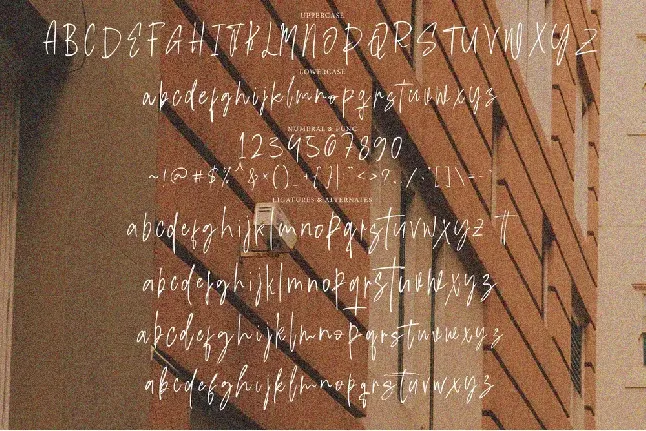 UPPERCASE
ABCDEFGHIJKLMNOPQRSTUVWXYZ
LOWERCASE
abcdefghijklmnopqrstuvwxyz
NUMERAL & PUNC
1234567890
~!@#$%^&*()_+{}|"<>?,./;'[]\=-`
LIGATURES & ALTERNATES
abcdefghijklmnopqrstuvwxyz tt
abcdefghijklmnopqrstuvwxyz
abcdefghijklmnopqrstuvwxyz
abcdefghijklmnopqrstuvwxyz